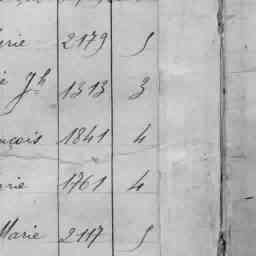 rie 2179 5
Jh 1313 3
nçois 1841 4
rie 1761 4
Marie 2117 5